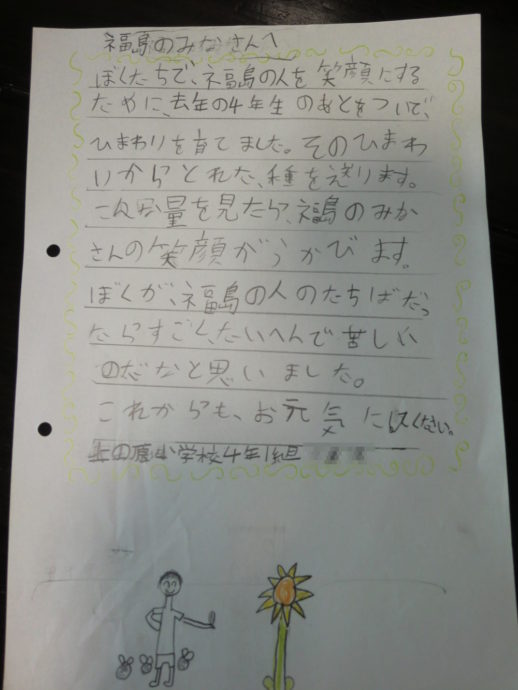 福島のみなさんへ
ぼくたちで、福島の人を笑顔にする
ために、去年の4年生のあとをついで、
ひまわりを育てました。そのひまわ
りからとれた、種を送ります。
こんな量を見たら、福島のみな
さんの笑顔がうかびます。
ぼくが、福島の人のたちばだっ
たらすごく、たいへんで苦しい
のだなと思いました。
これからも、お元気に
上の原小学校4年1組